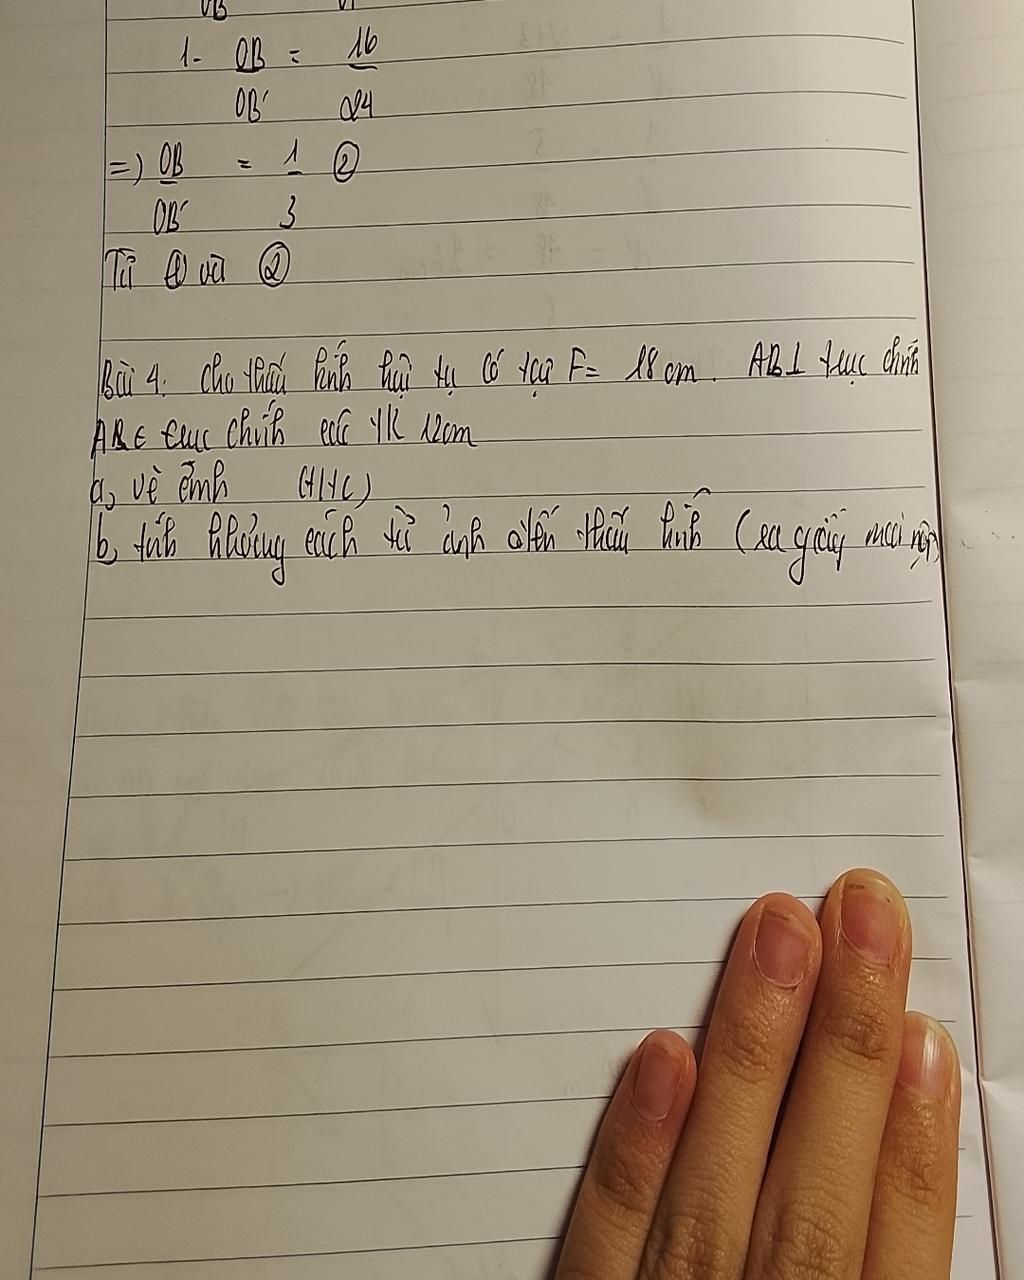 1- OB = 16
OB' 24
=) OB = 1 ②
OB' 3
Từ ① và ②
Bài 4. Cho thấu kính hội tụ có tại F= 18 cm. AB⊥ trục chính
A∈ trục chính các TK 12cm
a, vẽ ảnh
b, tính khoảng cách từ ảnh đến thấu kính (ra giấy